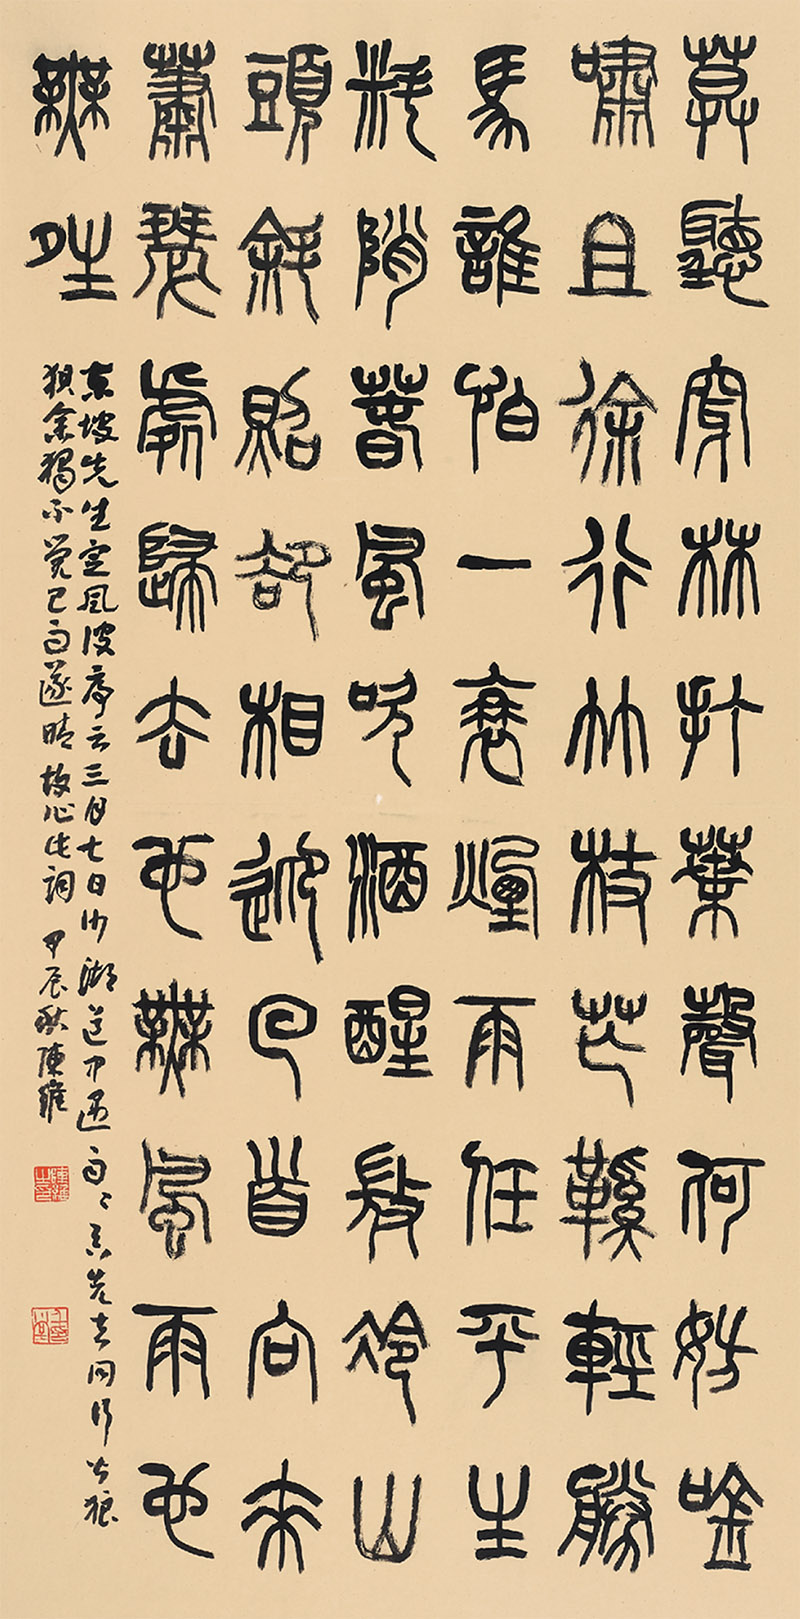 莫聽穿林打葉聲何妨唫
嘯且徐行竹杖芒鞵輕勝
馬誰怕一蓑煙雨任平生
料峭春風吹酒醒微冷山
頭斜照却相迎回首向來
蕭瑟處歸去也無風雨也
無夝
東坡先生定風波序云三月七日沙湖道中遇雨雨具先去同行皆狼
狽余獨不覺已而遂晴故作此詞 甲辰秋陳維